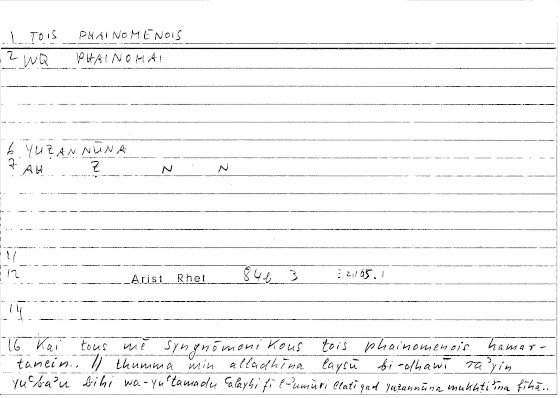 1 TOIS PHAINOMENOIS
2 WQ PHAINOMAI
6 YUẒANNŪNA
7 AH Ẓ N N
11
12 Arist Rhet 84b 3 : 21
14
16 Kai tous mē syngnōmonikous tois phainomenois hamar-
tanein.. // thumma min alladhīna laysū bi-dhawī ra'yin
yuʿba'u bihi wa-yuʿtamadu ʿalayhi fī l-umūri llatī qad yuẓannūna mukhṭi'īna fīhā..